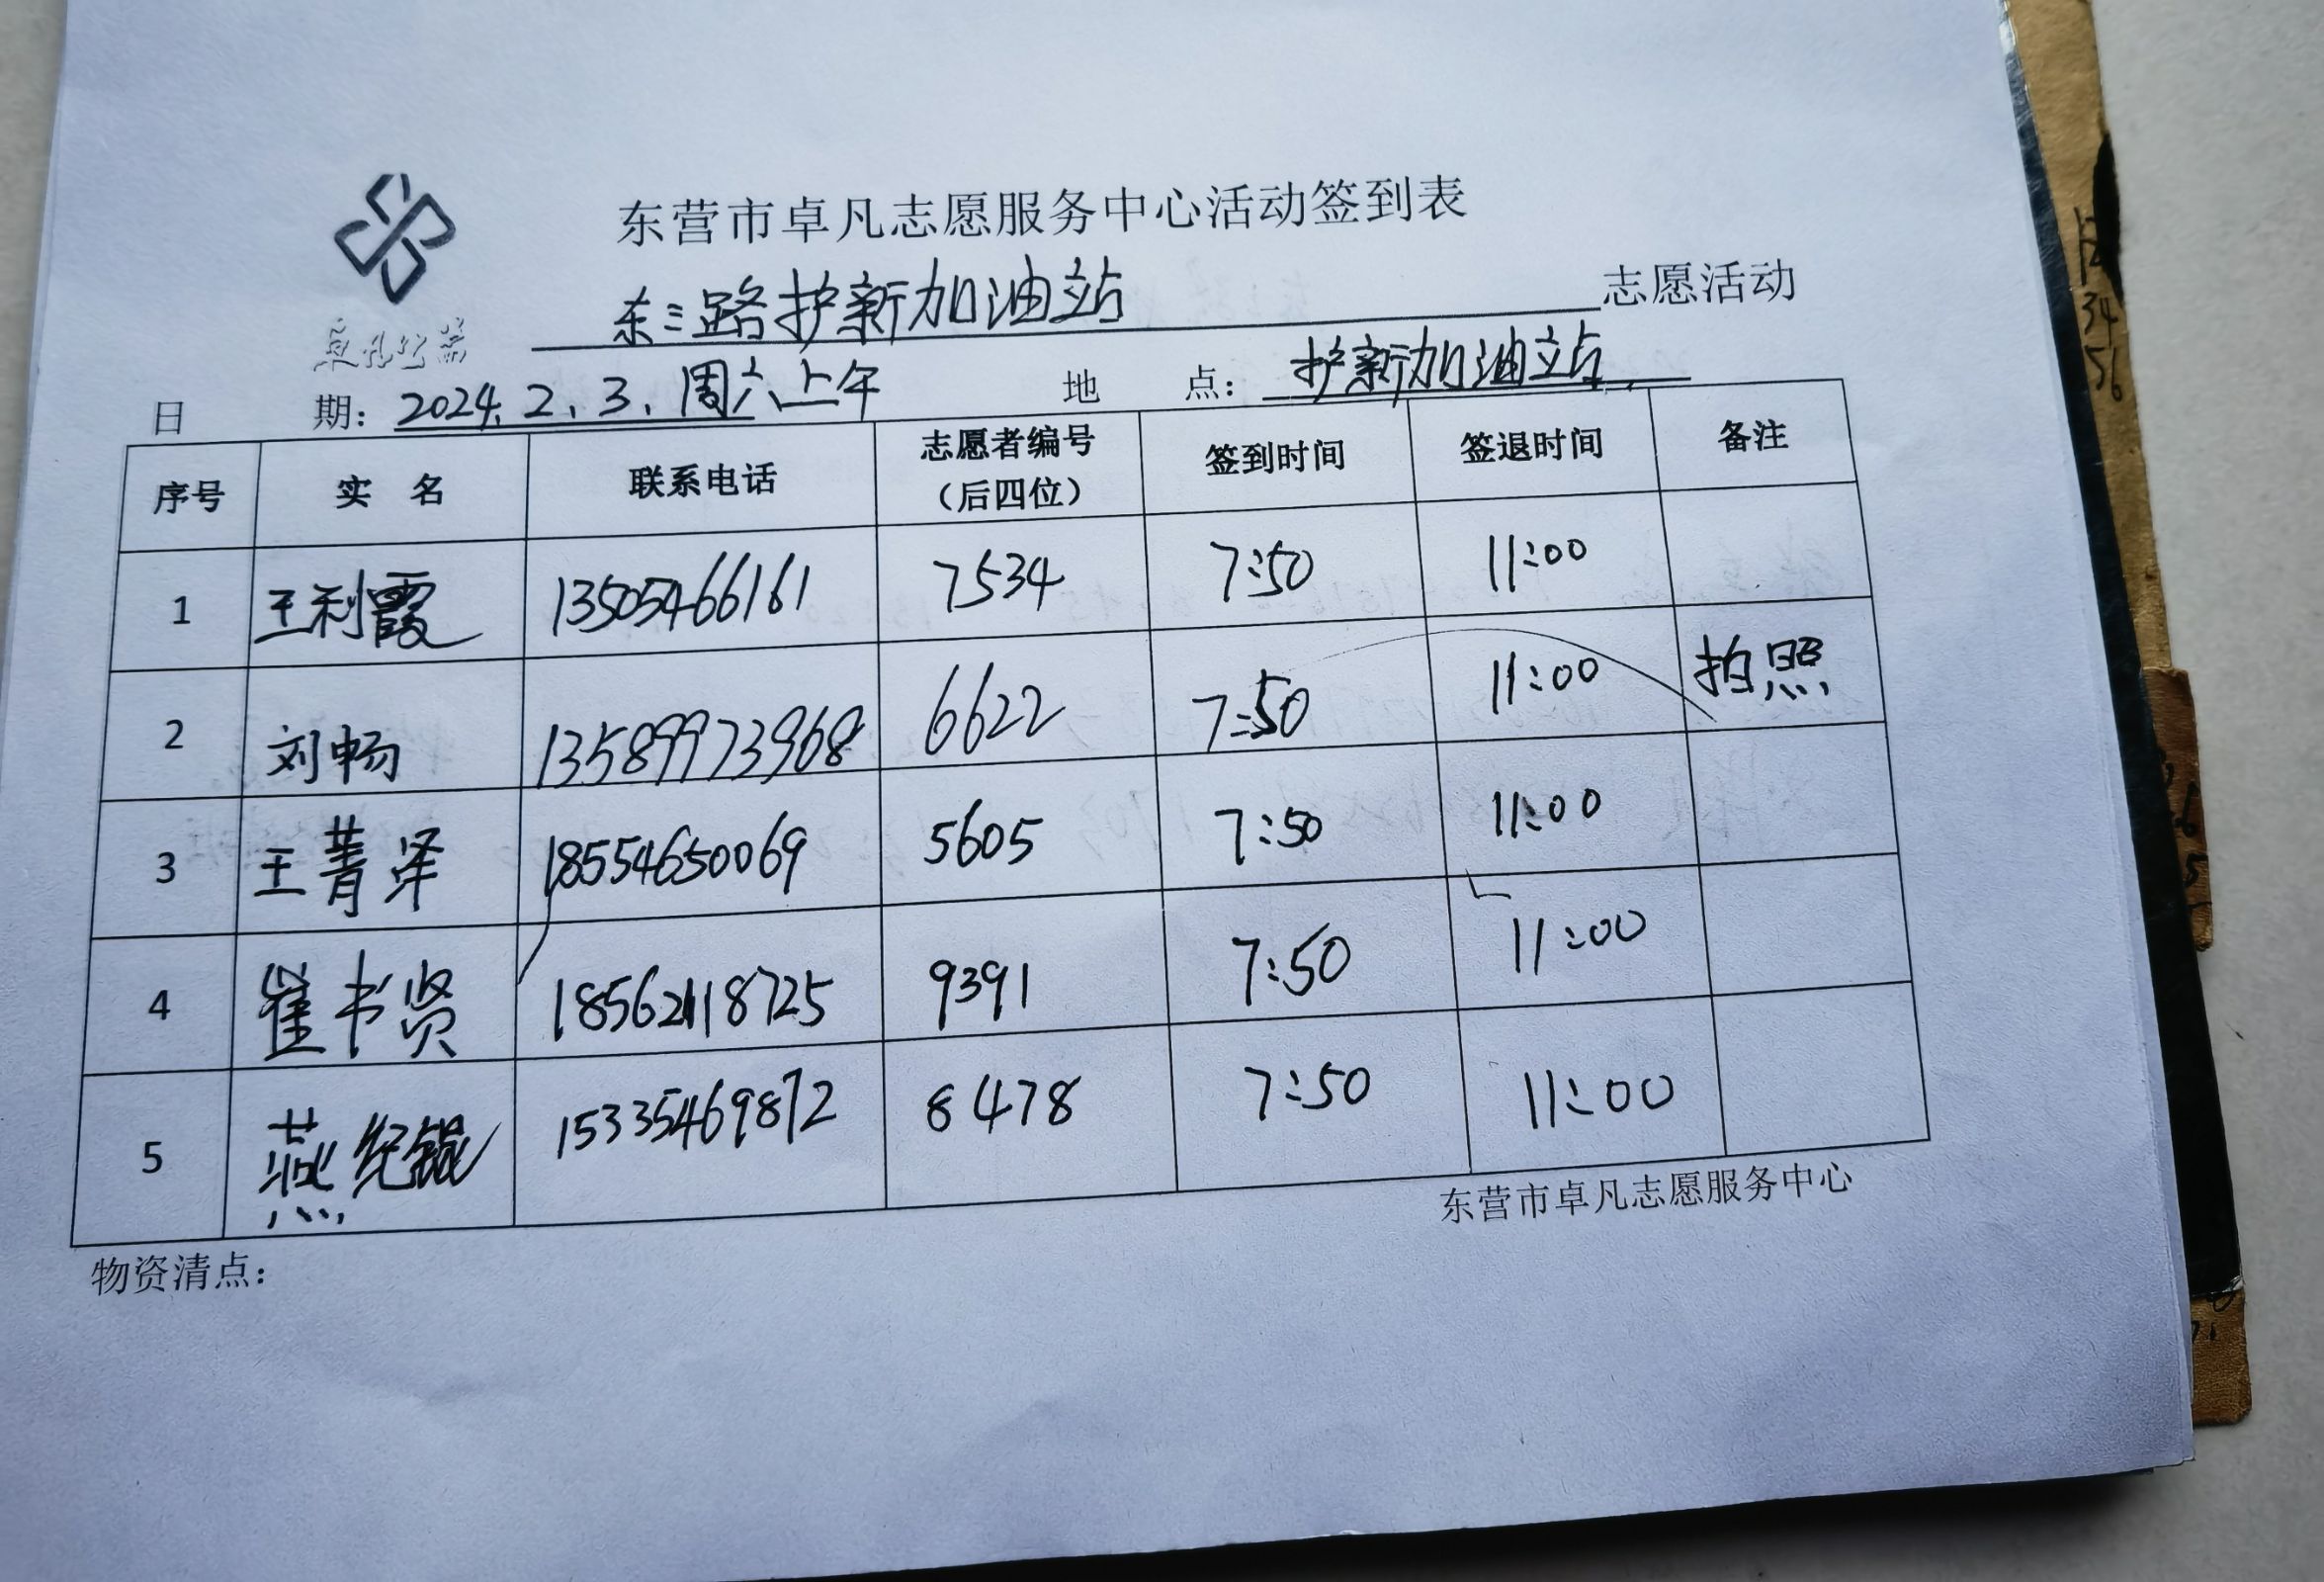 东营市卓凡志愿服务中心活动签到表
东三路护新加油站 志愿活动
卓凡公益
日 期：2024.2.3.周六上午 地 点：护新加油站
序号 实 名 联系电话 志愿者编号（后四位） 签到时间 签退时间 备注
1 王利霞 13505466161 7534 7:50 11:00
2 刘畅 13589973968 6622 7:50 11:00 拍照
3 王菁泽 18554650069 5605 7:50 11:00
4 崔书贤 18562118725 9391 7:50 11:00
5 燕纪锟 15335469872 8478 7:50 11:00
东营市卓凡志愿服务中心
物资清点：
34
56